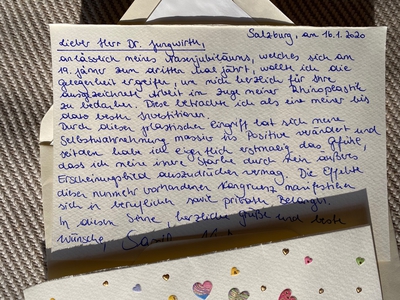 Salzburg, am 16.1.2020
Lieber Herr Dr. Jungwirth,
anlässlich meines Nasenjubiläums, welches sich am
19. Jänner zum dritten Mal jährt, wollte ich die
Gelegenheit ergreifen, um mich herzlich für Ihre
ausgezeichnete Arbeit im Zuge meiner Rhinoplastik
zu bedanken. Diese betrachte ich als eine meiner bis
dato besten Investitionen.
Durch diesen plastischen Eingriff hat sich meine
Selbstwahrnehmung massiv ins Positive verändert und
seitdem habe ich eigentlich erstmalig das Gefühl,
dass ich meine innere Stärke durch mein äußeres
Erscheinungsbild auszudrücken vermag. Die Effekte
dieser nunmehr vorhandenen Kongruenz manifestieren
sich in beruflichen sowie privaten Belangen.
In diesem Sinne, herzliche Grüße und beste
Wünsche,